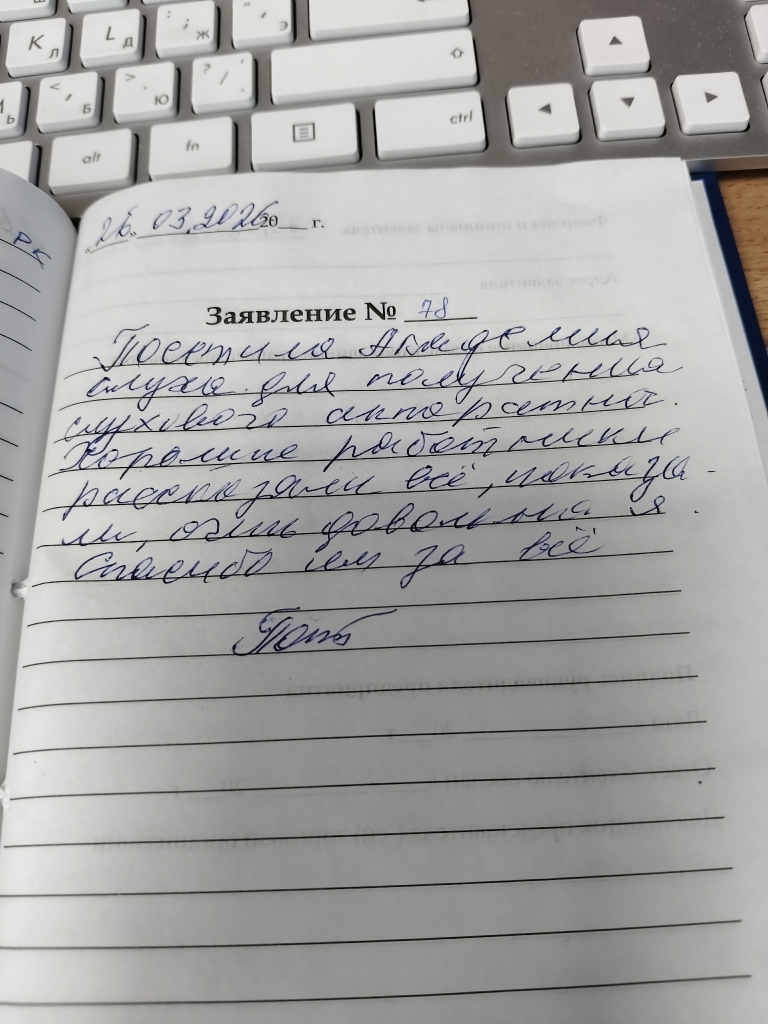 К Л
L Д
: ; Ж
" ' Э
< , Б
> . Ю
? / .
Ь
alt
fn
ctrl
РК
„26„ 03.2026 20___ г.
Заявление № 78
Посетила Академия
слуха для получения
слухового аппаратной.
Хорошие работники
рассказали всё, показа-
ли, очень довольна я.
Спасибо им за всё